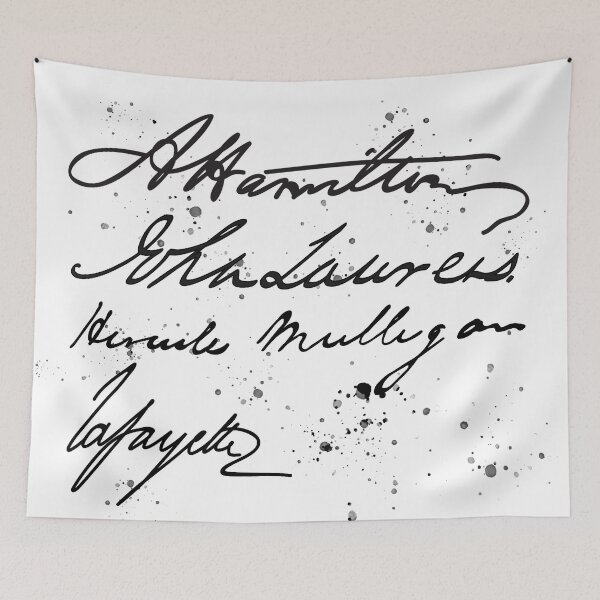 A Hamilton
John Laurens.
Hercules Mulligan
Lafayette